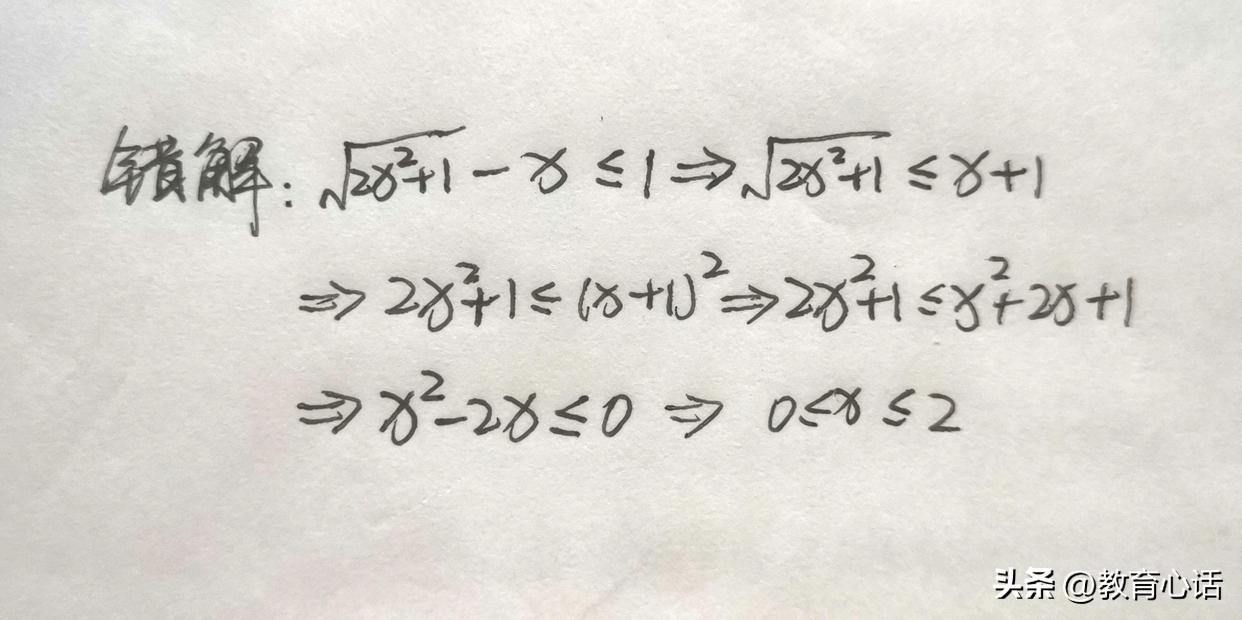 错解: √(2x²+1) - x ≤ 1 ⇒ √(2x²+1) ≤ x+1
⇒ 2x²+1 ≤ (x+1)² ⇒ 2x²+1 ≤ x²+2x+1
⇒ x²-2x ≤ 0 ⇒ 0≤x ≤ 2
头条 @教育心话